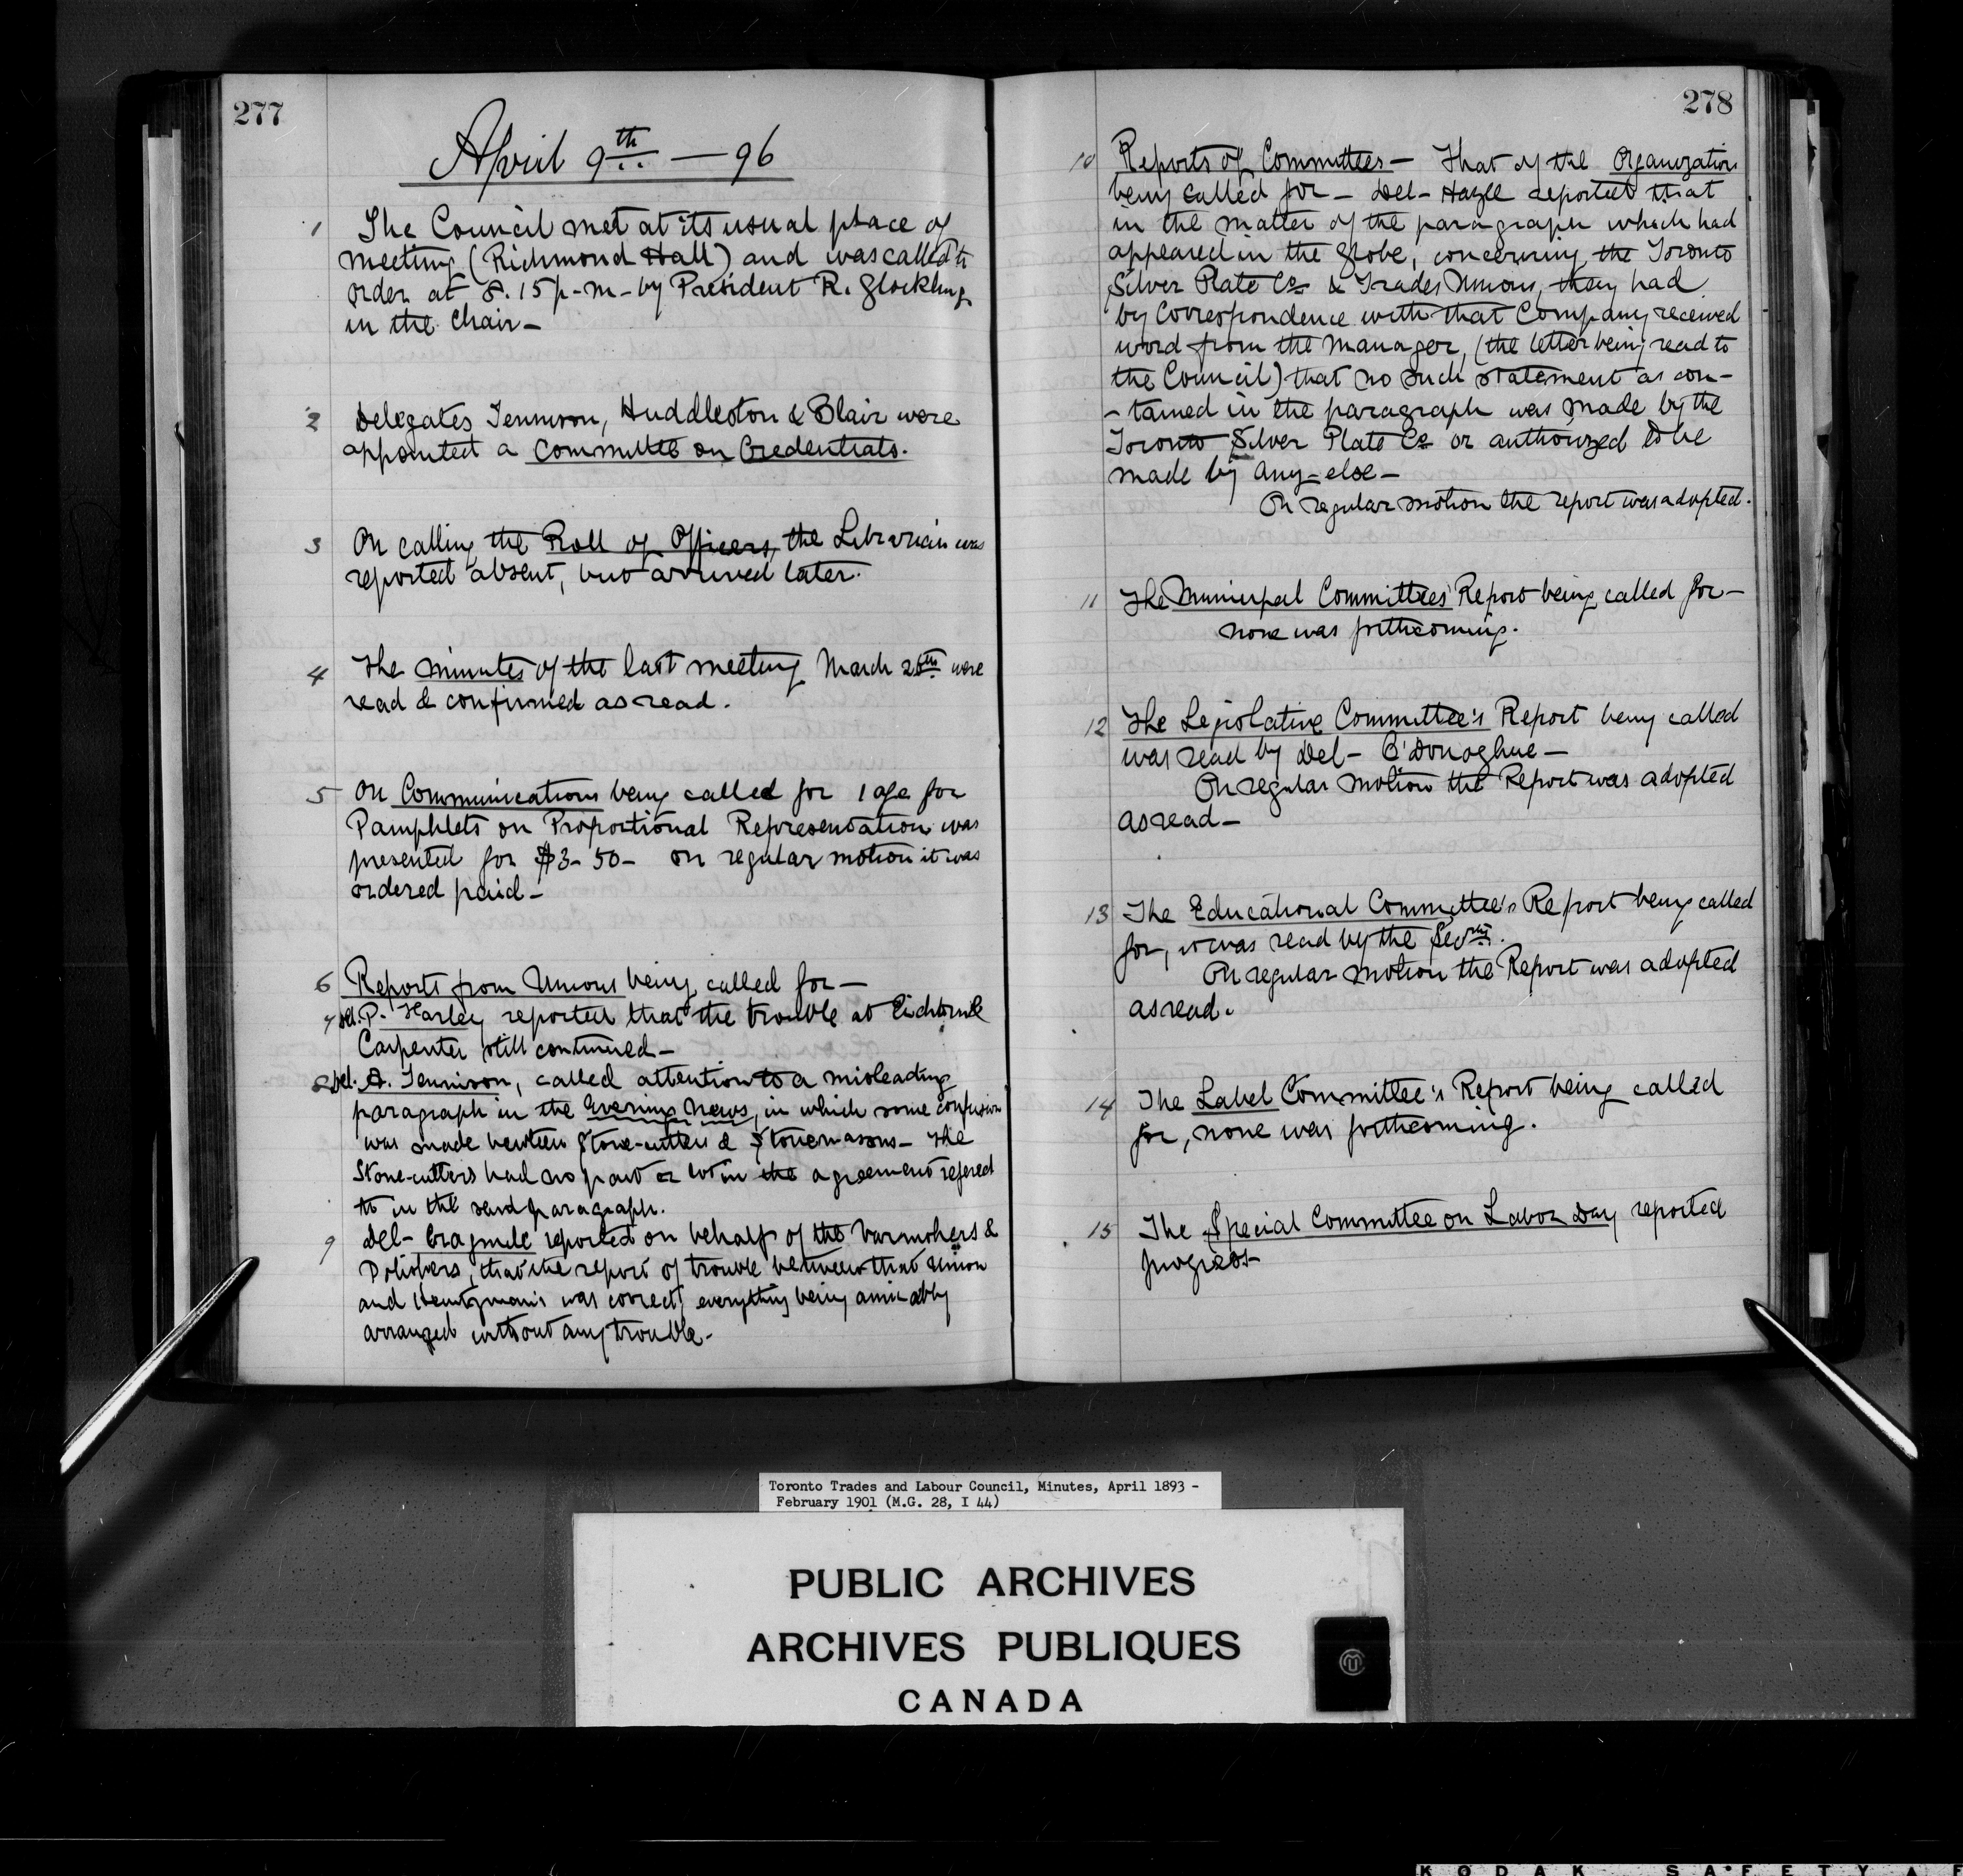 277
April 9th — 96
1 The Council met at its usual place of
meeting (Richmond Hall) and was called to
order at 8.15 p-m- by President R. Glockling
in the Chair-
2 Delegates Tennison, Huddleston & Blair were
appointed a Committee on Credentials.
3 On calling the Roll of Officers, the Librarian was
reported absent, but arrived later.
4 The minutes of the last meeting March 26th were
read & confirmed as read.
5 On Communications being called for 1 a/c for
Pamphlets on Proportional Representation was
presented for $3-50- on regular motion it was
ordered paid-
6 Reports from Unions being called for—
7 Del. P. Harley reported that the trouble at
Carpenter still continued—
8 Del. A. Tennison, called attention to a misleading
paragraph in the Evening News, in which some confusion
was made between Stone-cutters & Stonemasons- The
Stone-cutters had no part or lot in the agreement refered
to in the said paragraph.
9 Del- reported on behalf of the Varnishers &
Polishers, that the report of trouble between that Union
and was correct, everything being amicably
arranged without any trouble-
278
10 Reports of Committees— That of the Organization
being called for- Del- Hazle reported that
in the matter of the paragraph which had
appeared in the Globe, concerning the Toronto
Silver Plate Co & Trades Unions, they had
by Correspondence with that Company received
word from the Manager, (the letter being read to
the Council) that no such statement as con-
-tained in the paragraph was made by the
Toronto Silver Plate Co or authorized to be
made by any-else-
On regular motion the report was adopted.
11 The Municipal Committees' Report being called for—
none was forthcoming.
12 The Legislative Committee's Report being called
was read by Del- O'Donoghue—
On regular motion the Report was adopted
as read—
13 The Educational Committee's Report being called
for, it was read by the Secrty.
On regular motion the Report was adopted
as read.
14 The Label Committee's Report being called
for, none was forthcoming.
15 The Special Committee on Labor Day reported
progress-
Toronto Trades and Labour Council, Minutes, April 1893 -
February 1901 (M.G. 28, I 44)
PUBLIC ARCHIVES
ARCHIVES PUBLIQUES
CANADA
KODAK SAFETY